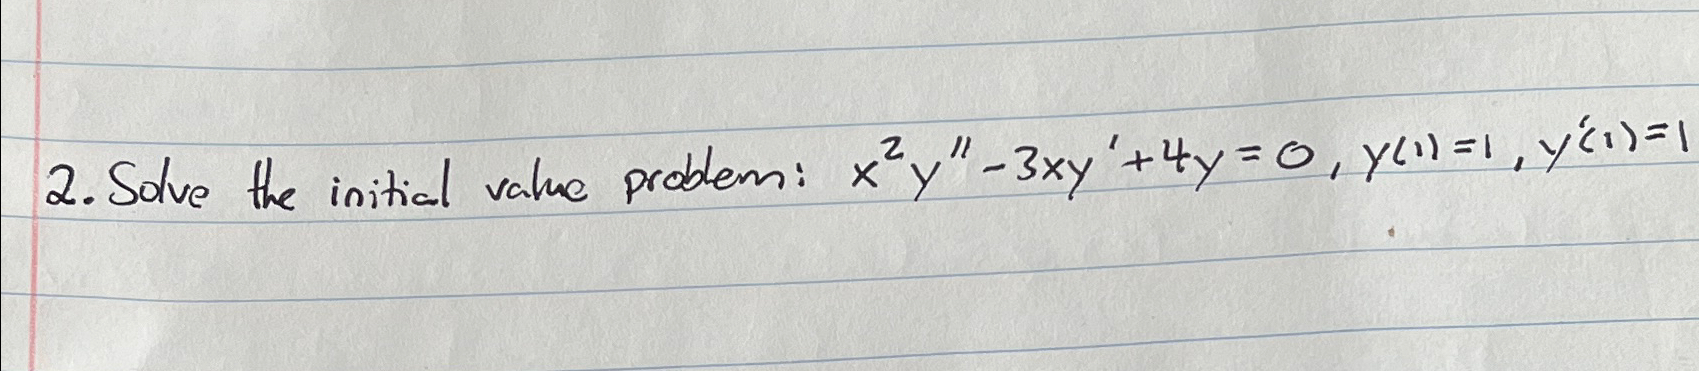 2. Solve the initial value problem: x²y" - 3xy' + 4y = 0, y(1) = 1, y'(1) = 1